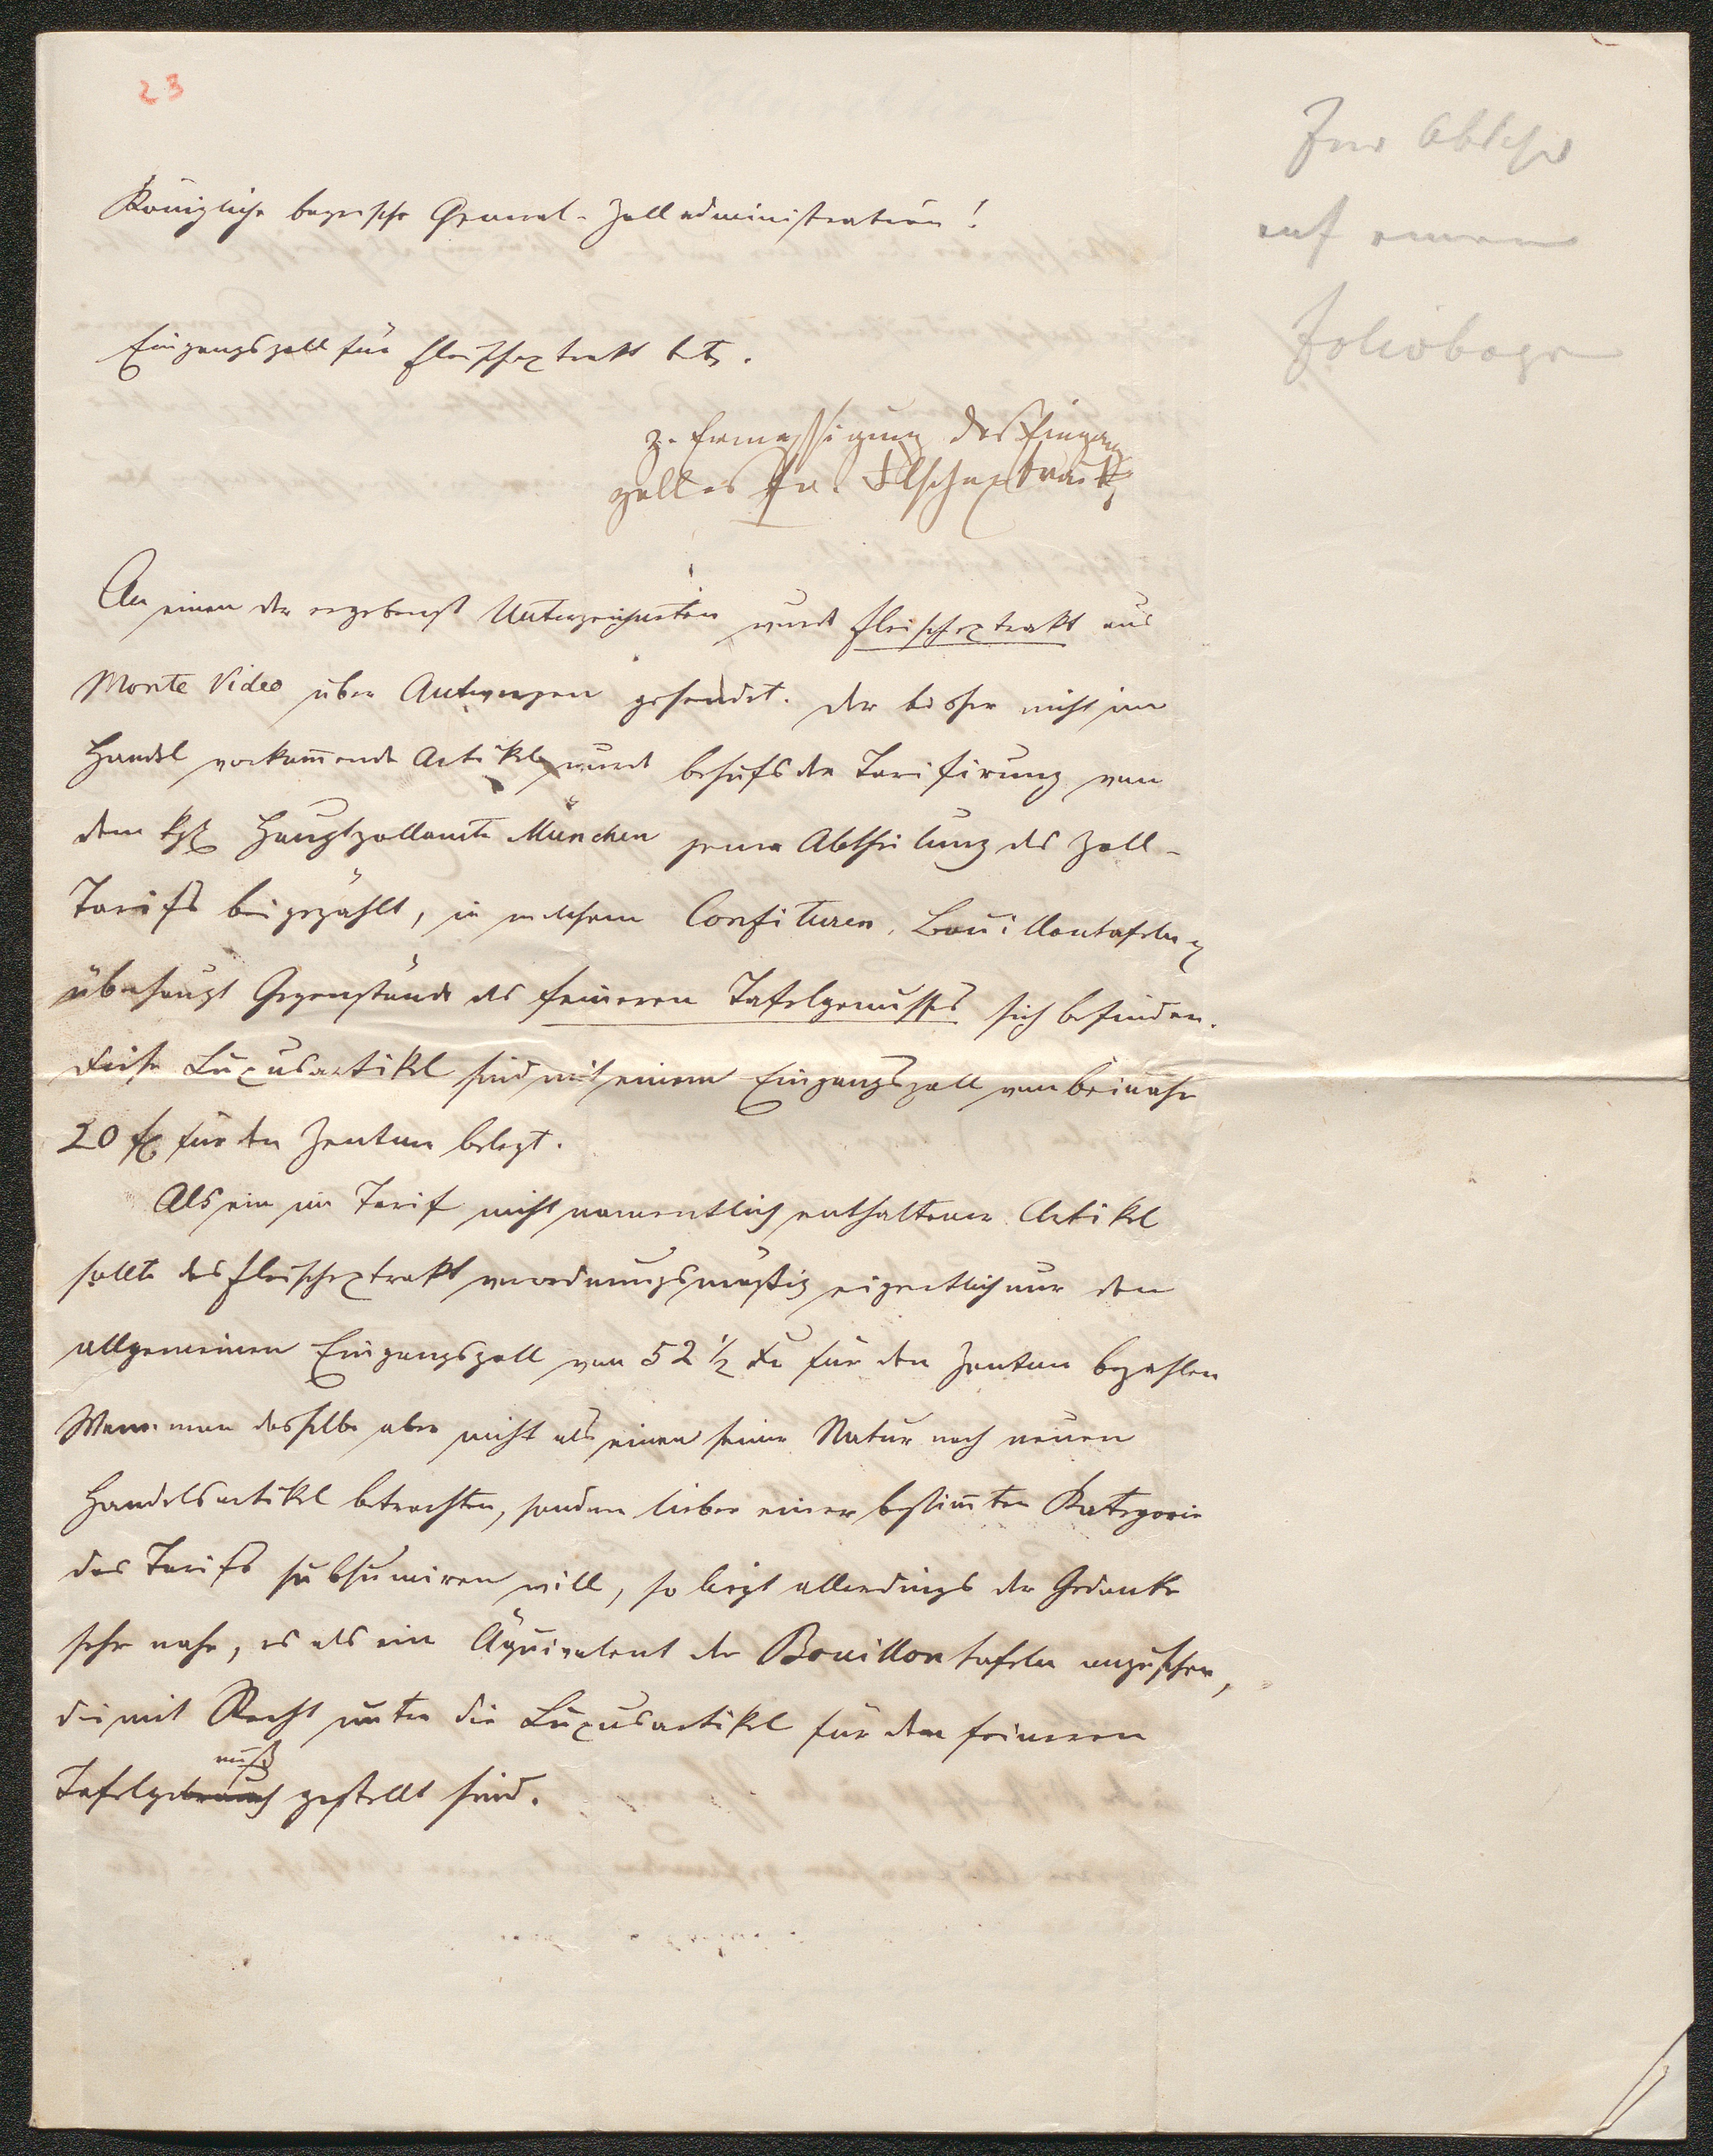 23
Zur Abschr
auf einen
Foliobogen
Königliche bayrische General-Zolladministration!
Eingangszoll für Fleischextrakt betr.
z. Ermässigung des Eingang
zolles für Flschextrakt
An einen der ergebenst Unterzeichneten wurde Fleischextrakt aus
Monte Video über Antwerpen gesendet. Der bisher nicht im
Handel vorkom̅ende Artikel wurde behufs der Tarifirung von
dem kgl Hauptzollamte München jener Abtheilung des Zoll-
Tarifs beigezählt, in welchem Confituren, Bouillontafeln
überhaupt Gegenstände des feineren Tafelgenusses sich befinden.
Diese Luxusartikel sind mit einem Eingangszoll von beinahe
20 fl für den Zentner belegt.
Als ein im Tarif nicht namentlich enthaltener Artikel
sollte das Fleischextrakt verordnungsmäßig eigentlich nur den
allgemeinen Eingangszoll von 52 ½ Kr für den Zentner bezahlen
Wenn man dasselbe aber nicht als einen seiner Natur nach neuen
Handelsartikel betrachten, sondern lieber einer bestim̅ten Kategorie
des Tarifs subsumiren will, so liegt allerdings der Gedanke
sehr nahe, es als ein Äquivalent der Bouillontafeln anzusehen,
die mit Recht unter die Luxusartikel für den feineren
nuß
Tafelgebrauch gestellt sind.